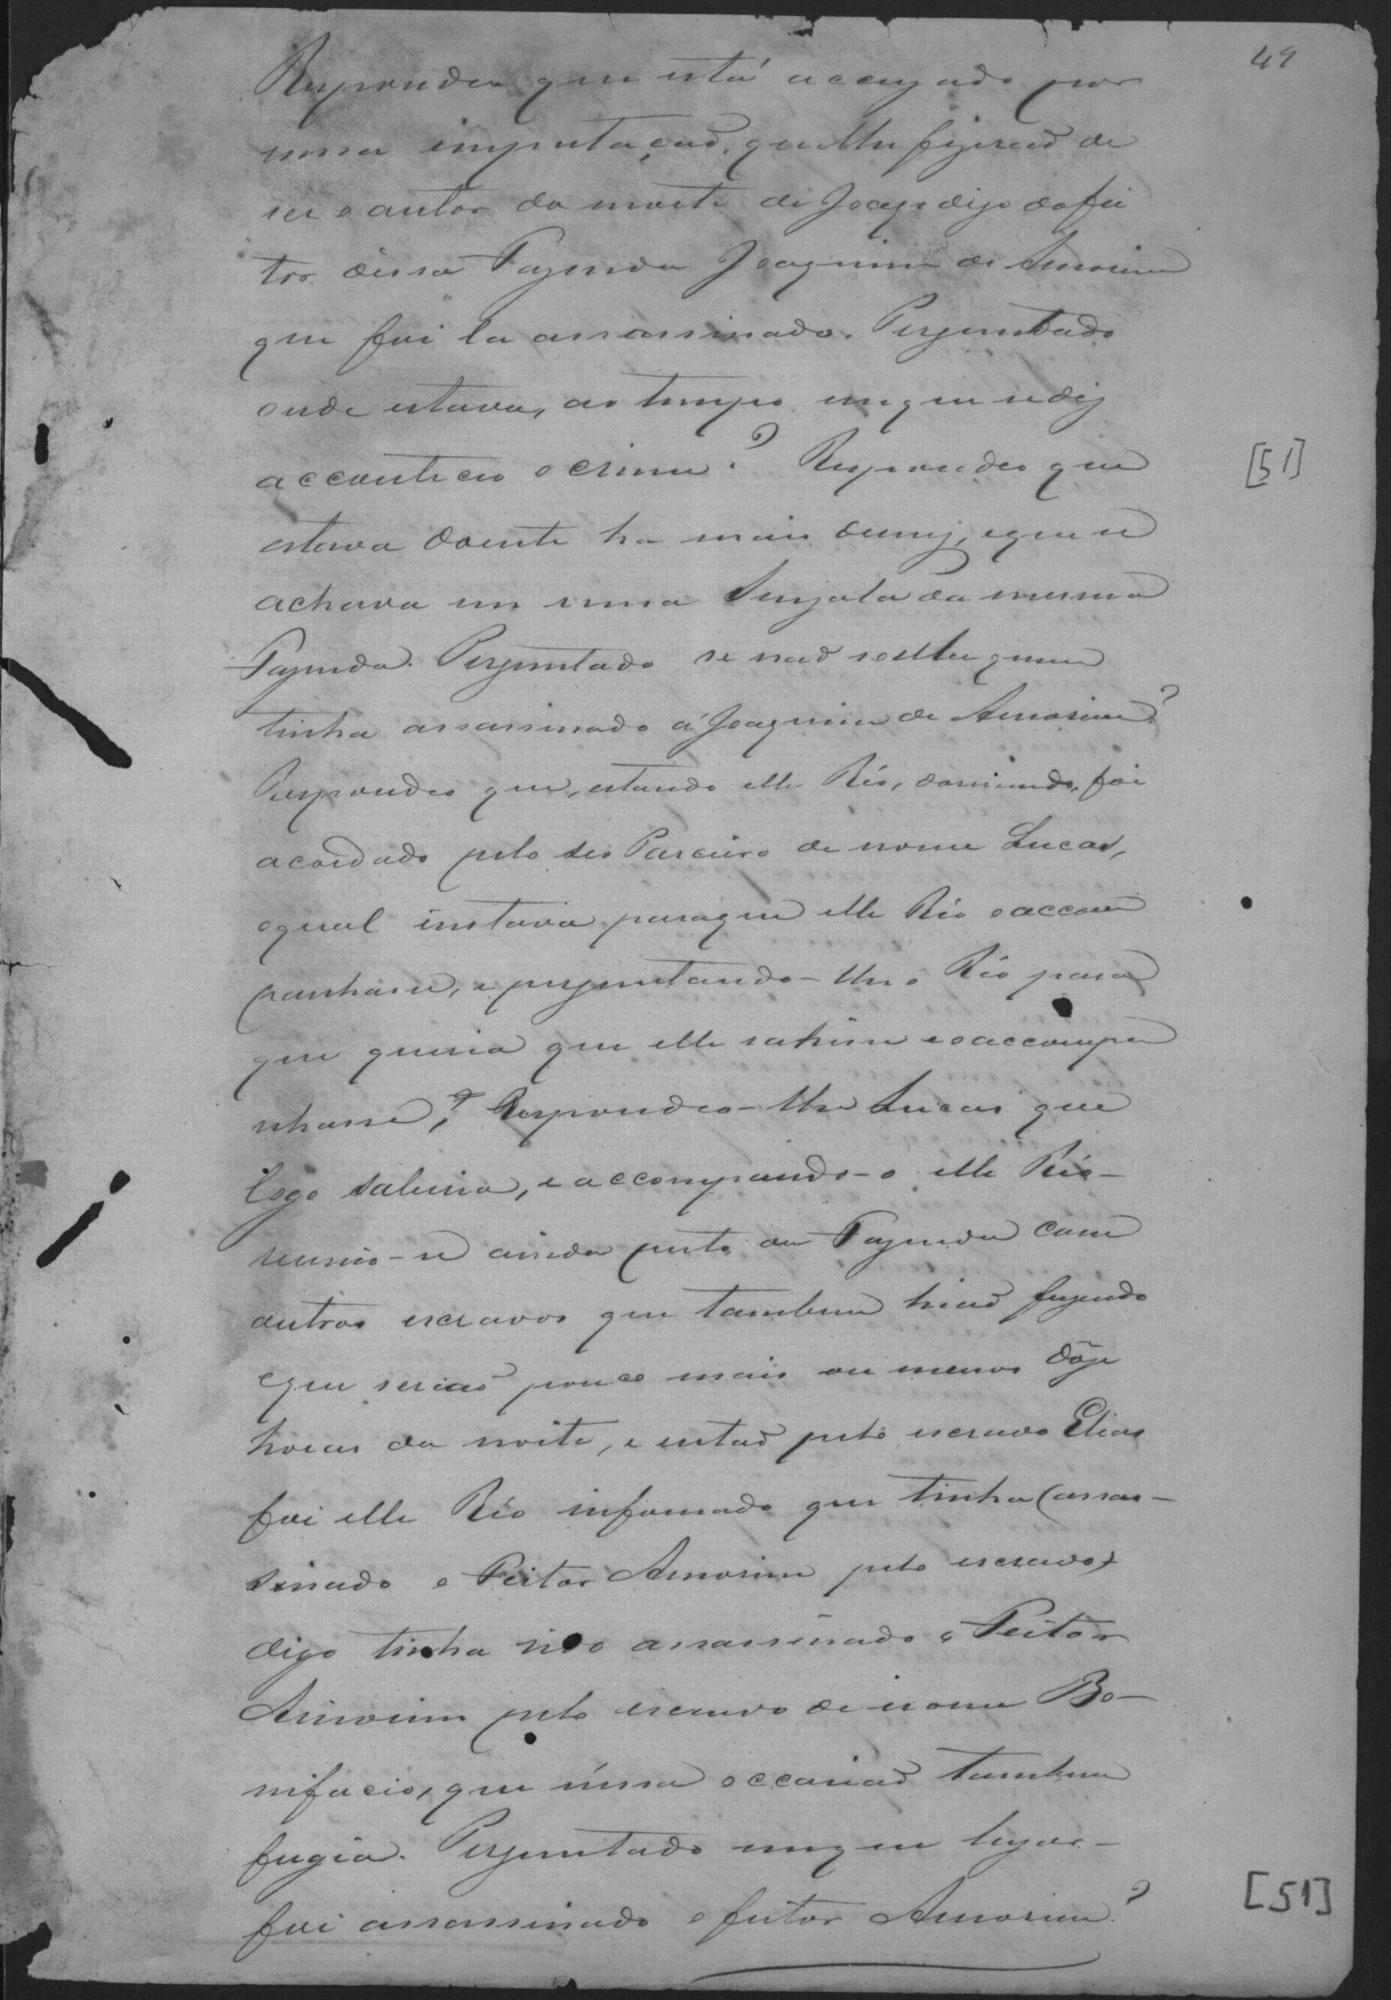 49
Respondeu que está accuzado por
uma imputação, que lhe fizerão de
ser o autor da morte de Joaq digo do fei
tor dessa Fazenda Joaquim de Amorim
que foi la assassinado. Perguntado
onde estava, ao tempo em que se diz
acconteceo o crime? Respondeo que
estava doente ha mais de mez, e que se
achava em uma Senzala da mesma
Fazenda. Perguntado se não soube quem
tinha assassinado á Joaquim de Amorim?
Respondeo que, estando elle Réo, dormindo, foi
acordado pelo seo Parceiro de nome Lucas,
o qual instava para que elle Réo o accom
panhasse, e perguntando-lhe o Réo para
que queria que elle sahisse e o accompa
nhasse,? Respondeo-lhe Lucas que
logo saberia, e accompando-o elle Réo-
reunio-se ainda perto da Fazenda com
outros escravos que tambem hiaõ fugindo
e que seriaõ pouco mais ou menos dôze
horas da noite, e entaõ pelo escravo Elias
foi elle Réo informado que tinha (assas-
sinado o Feitor Amorim pelo escravo)
digo tinha sido assassinado o Feitor
Amorim pelo escravo de nome Bo-
nifacio, que nessa occasiaõ tambem
fugia. Perguntado em que lugar-
foi assassinado o feitor Amorim?
[51]
[51]